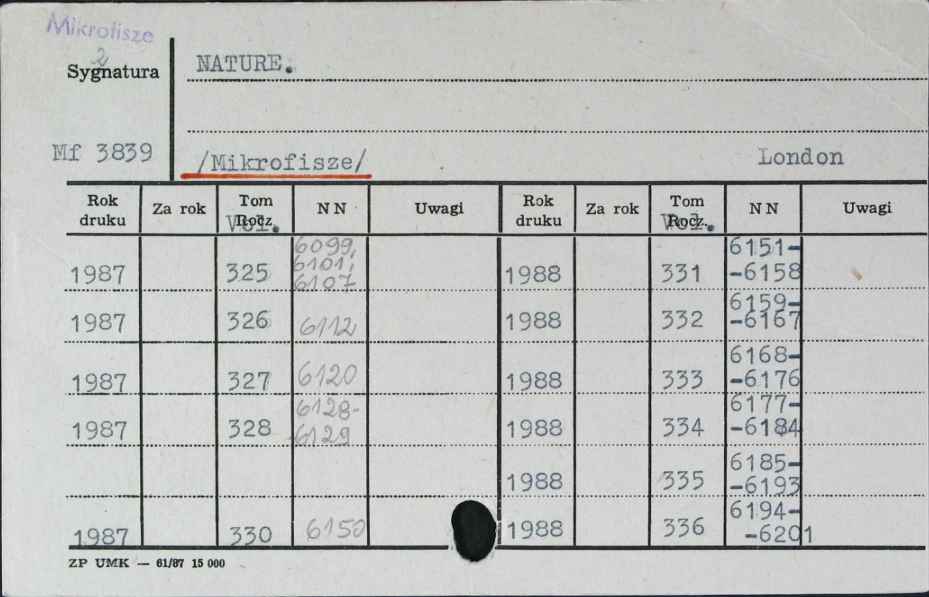 Mikrofisze
2
Sygnatura NATURE.
Mf 3839 /Mikrofisze/ London
Rok druku Za rok Tom Rocz. Vol. NN Uwagi Rok druku Za rok Tom Rocz. Vol. NN Uwagi
1987 325 6099, 6101, 6107 1988 331 6151- -6158
1987 326 6112 1988 332 6159- -6167
1987 327 6120 1988 333 6168- -6176
1987 328 6128- -6129 1988 334 6177- -6184
1988 335 6185- -6193
1987 330 6150 1988 336 6194- -6201
ZP UMK — 61/87 15 000